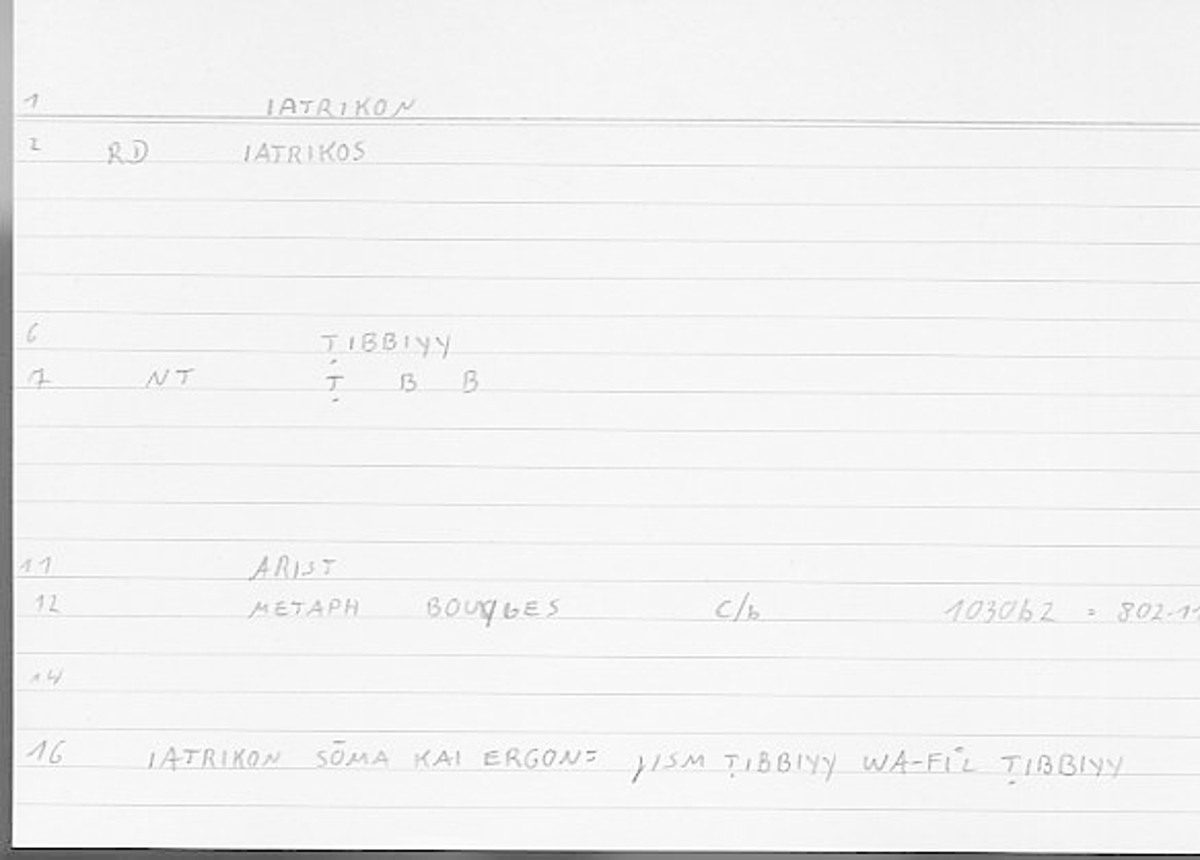 1 IATRIKON
2 RD IATRIKOS
6 ṬIBBIYY
7 NT Ṭ B B
11 ARIST
12 METAPH BOUYGES C/b 1030b2 = 802.11
14
16 IATRIKON SŌMA KAI ERGON = JISM ṬIBBIYY WA-FIʿL ṬIBBIYY